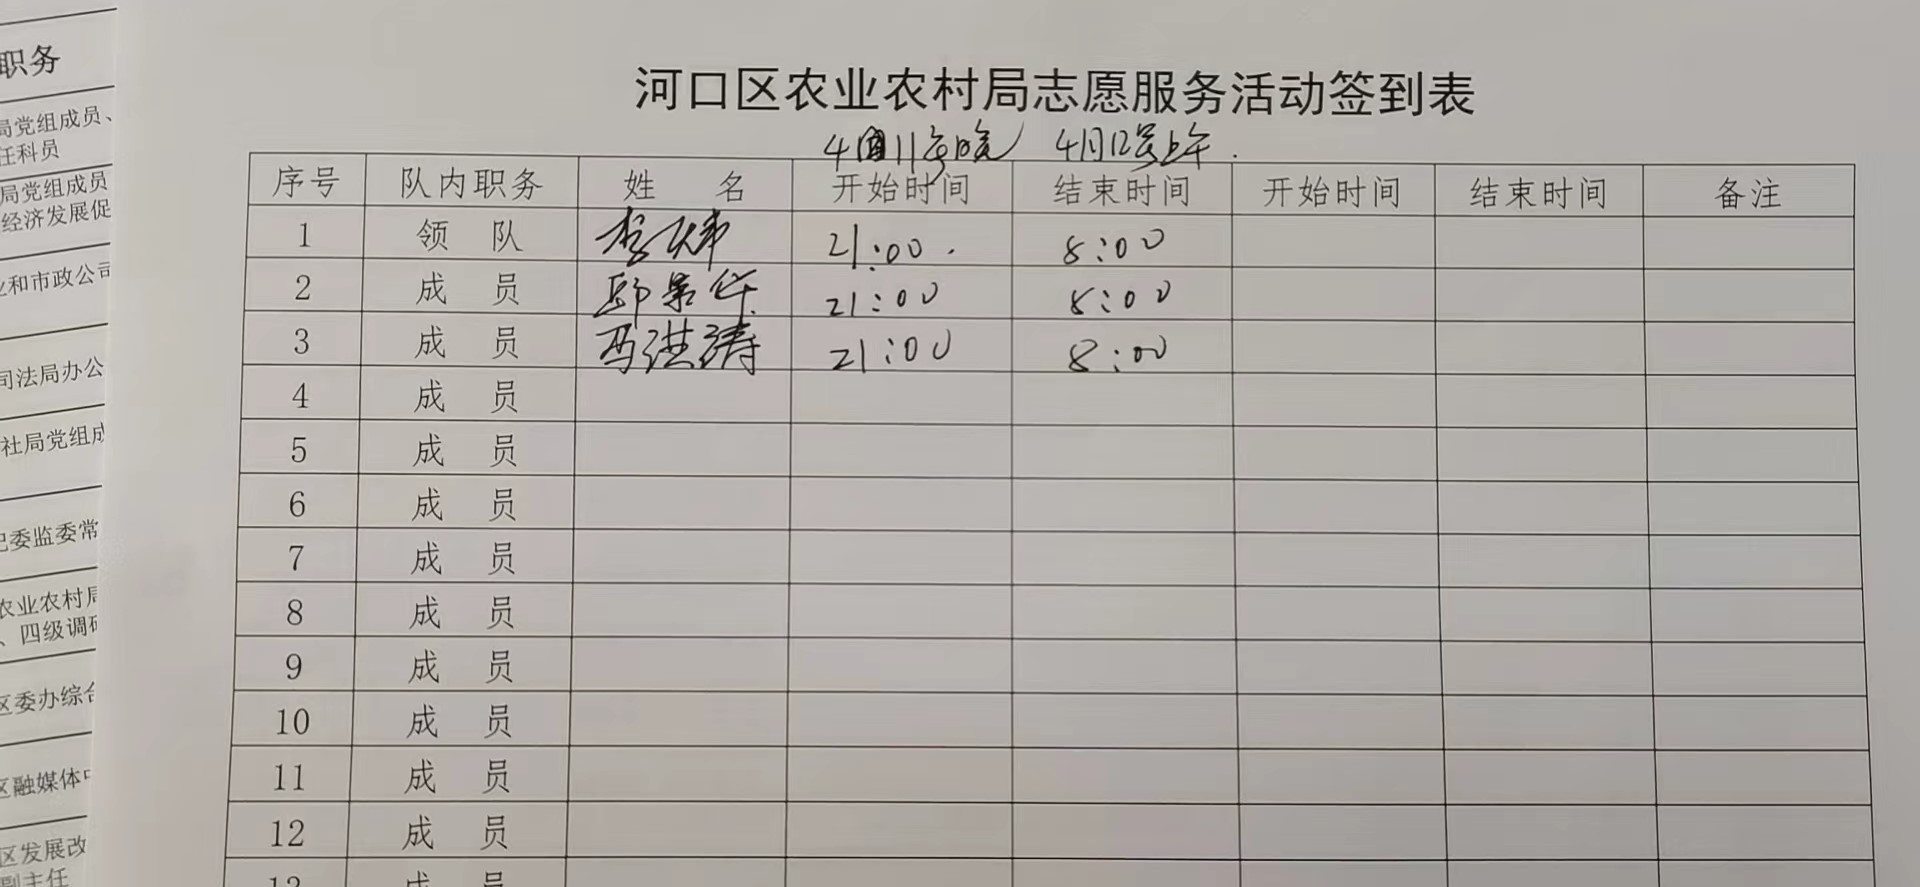 职务
局党组成员、
任科员
局党组成员
经济发展促
业和市政公司
司法局办公
社局党组成
纪委监委常
农业农村局
、四级调研
区委办综合
区融媒体中
区发展改
副主任
河口区农业农村局志愿服务活动签到表
4月11号晚 4月12号上午.
序号 队内职务 姓 名 开始时间 结束时间 开始时间 结束时间 备注
1 领 队 21:00. 8:00
2 成 员 21:00 8:00
3 成 员 马洪涛 21:00 8:00
4 成 员
5 成 员
6 成 员
7 成 员
8 成 员
9 成 员
10 成 员
11 成 员
12 成 员
13 成 员